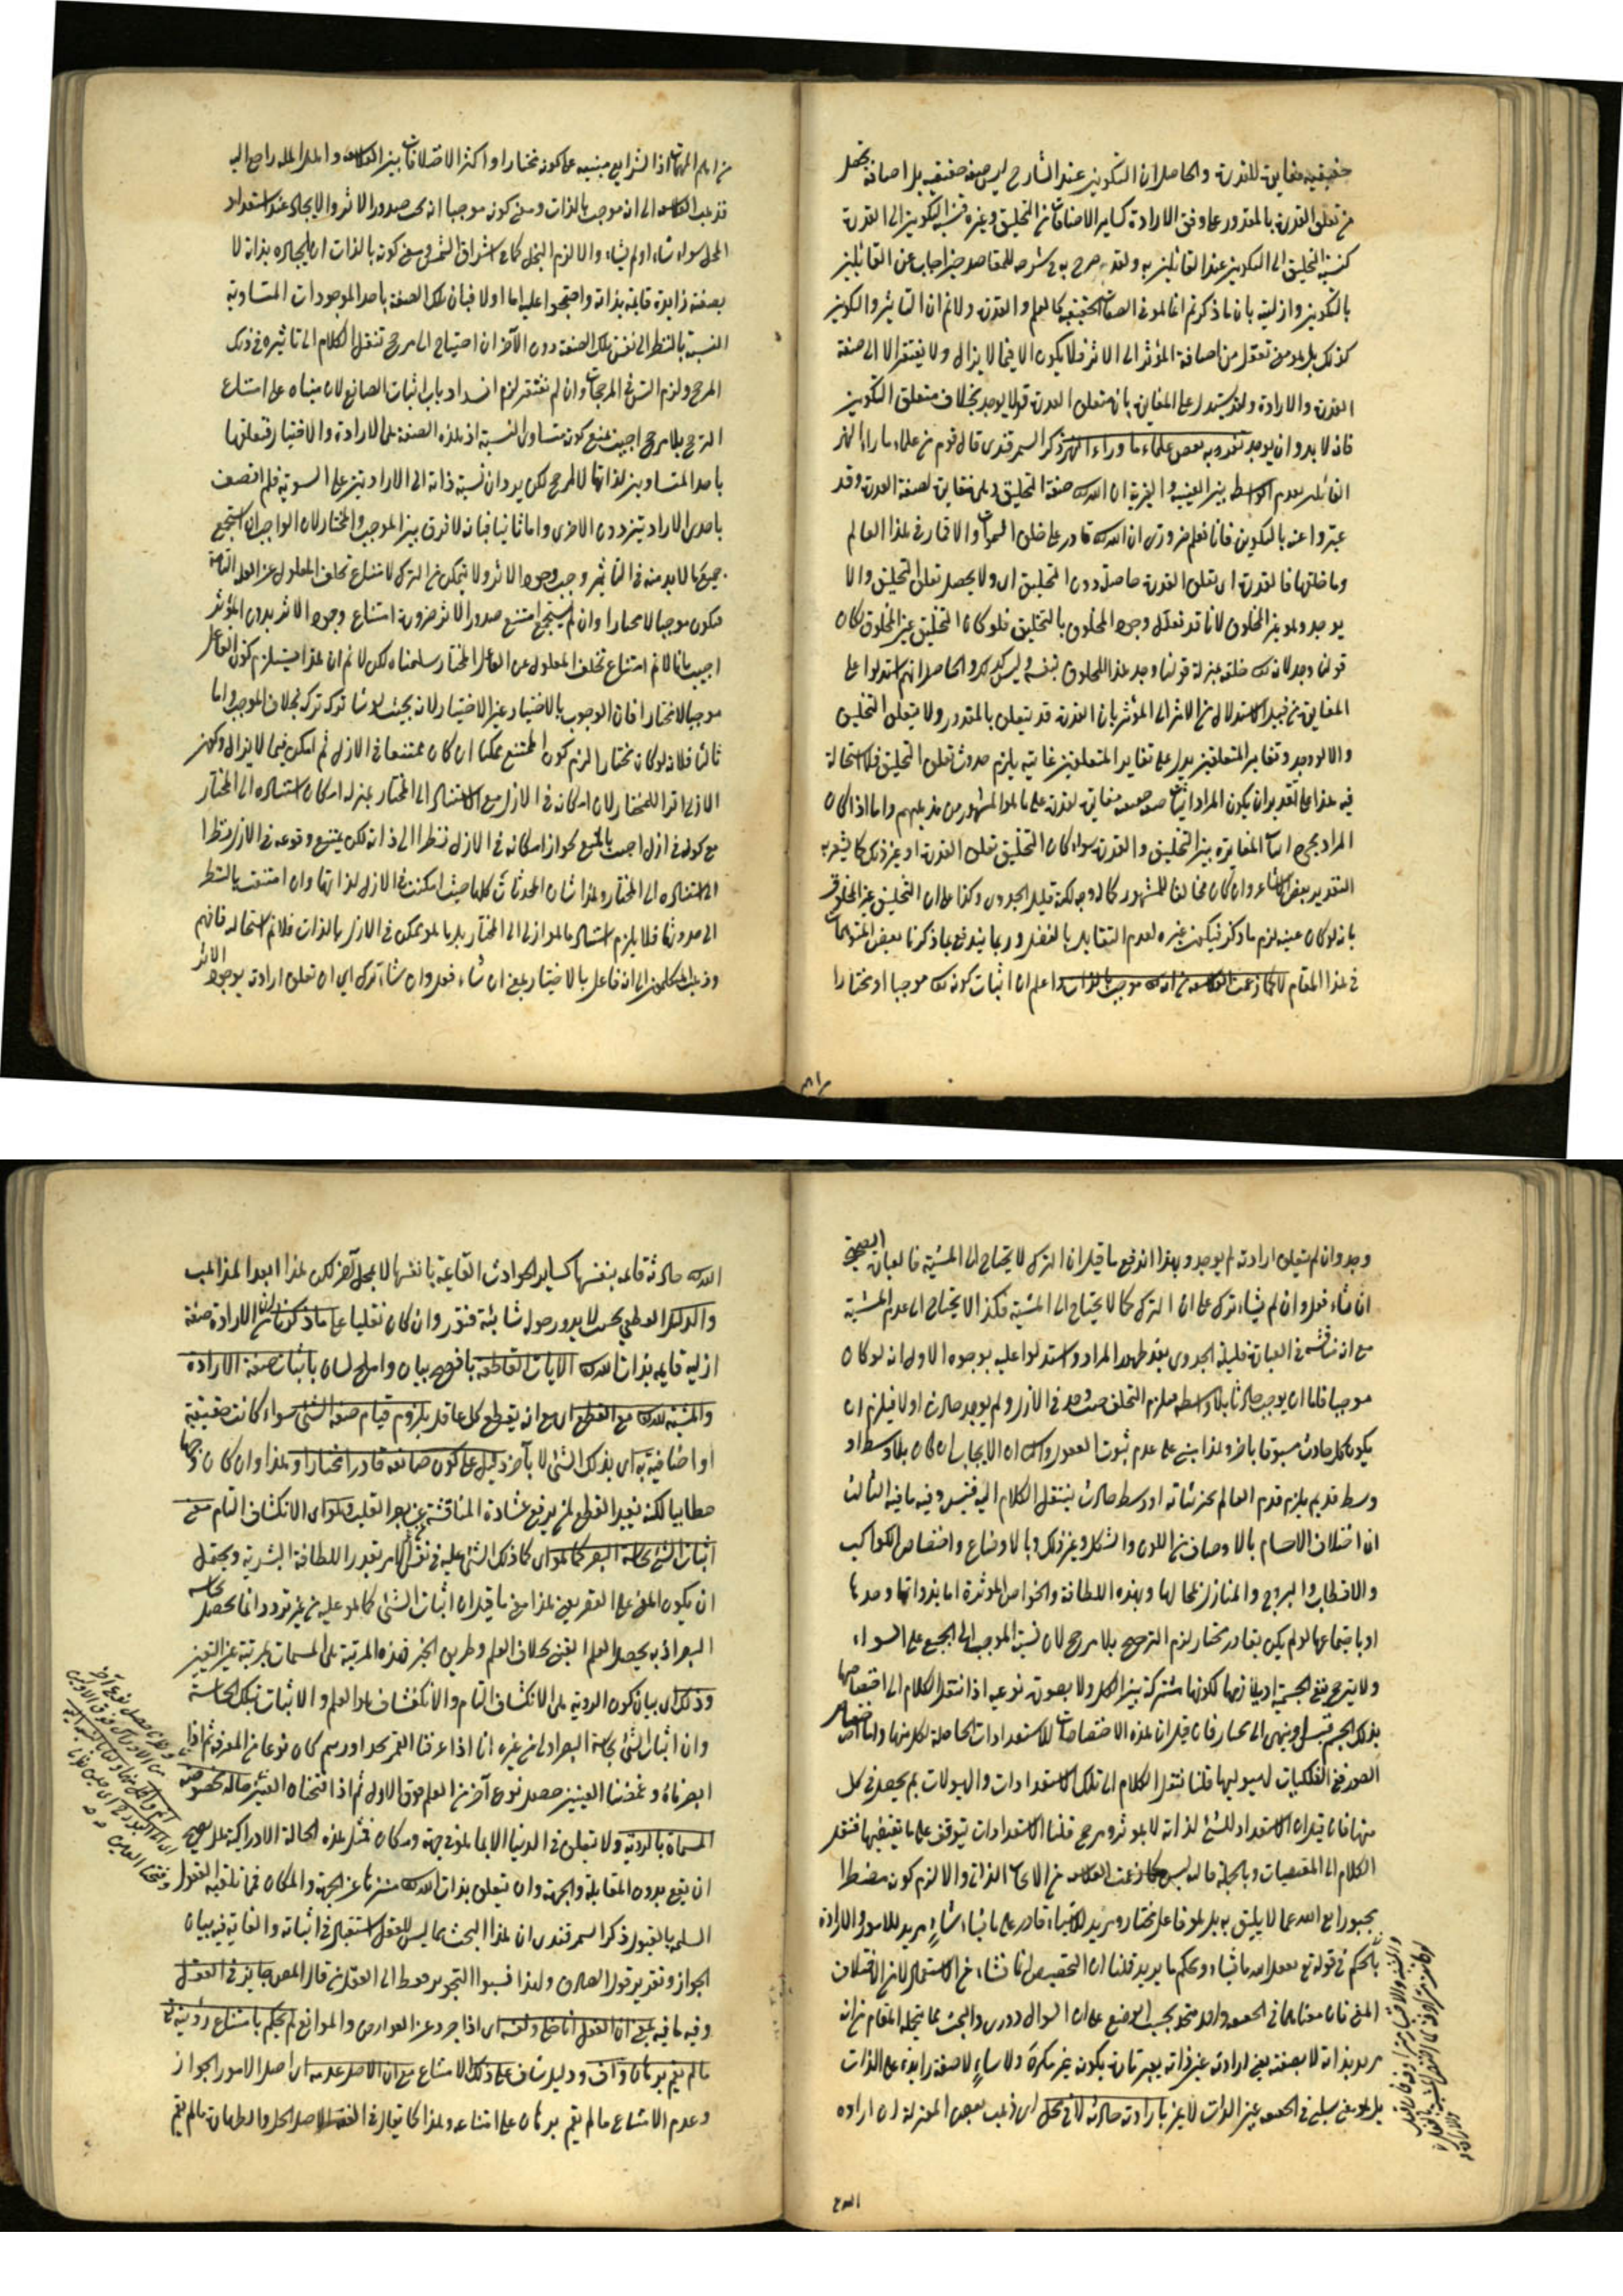 حقيقية مغايرة للقدرة والحاصل ان التكوين عند الشارح ليس صفة حقيقية بل اضافة تحصل
من تعلق القدرة بالمقدور على وفق الارادة كساير الاضافات من التخليق وغيره فنسبة التكوين الى القدرة
كنسبة التخليق الى التكوين عند القائلين به ولقد صرح به في شرحه للمقاصد حين اجاب عن القائلين
بالتكوين وازليته بان ما ذكرتم انما هو في الصفات الحقيقية كالعلم والقدرة ولا نم ان التأثير والتكوين
كذلك بل هو معنى تعقل من اضافة المؤثر الى الاثر فلا يكون الا فيما لا يزال ولا يفتقر الا الى صفة
القدرة والارادة ولقد يستدل على المغايرة بان متعلق القدرة قد لا يوجد بخلاف متعلق التكوين
فانه لا بد وان يوجد تفرد به بعض علماء ما وراء النهر ذكر السمرقندي قال قوم من علماء ما وراء النهر
القائلين بعدم الواسطة بين العينية والغيرية ان لله صفة التخليق وهي مغايرة لصفة القدرة وقد
عبروا عنه بالتكوين فانا نعلم ضرورة ان الله قادر على خلق السموات والاقمار في هذا العالم
وما خلقها فالقدرة اي تعلق القدرة حاصلة دون التخليق اي ولا يحصل تعلق التخليق والا
يوجد وهو غير المخلوق لانا قد نعلل وجود المخلوق بالتخليق فلو كان التخليق عين المخلوق لكان
قولنا وجد لانه خلقه بمنزلة قولنا وجد هذا المخلوق بنفسه وليس كذلك والحاصل انهم استدلوا على
المغايرة من قبيل الاستدلال من الاثر الى المؤثر بان القدرة قد يتعلق بالمقدور ولا يتعلق التخليق
والا لوجد وتغاير المتعلقين يدل على تغاير المتعلقين غايته يلزم حدوث تعلق التخليق فلا استحالة
فيه هذا على تقدير ان يكون المراد اثبات صفة مغايرة للقدرة على ما هو المشهور من مذهبهم واما اذا كان
المراد مجرد اثبات المغايرة بين التخليق والقدرة سواء كان التخليق تعلق القدرة او غير ذلك كما يشعر به
التقدير بعض الاشاعرة وان كان مخالفا للمشهور كان له وجه لكنه قليل الجدوى وكذا على ان التخليق غير المخلوق
بانه لو كان عينه لزم ما ذكر فيكون غيره لعدم التقابل بالفعل وربما يندفع بما ذكرنا بعض التوهمات
في هذا المقام لا كما زعمت الفلاسفة من انه موجب بالذات اعلم ان اثبات كونه موجبا او مختارا
من اهم المهمات اذ الشرايع مبنية على كونه مختارا واكثر الاختلافات بين الفلاسفة واهل الملة راجع اليه
فذهب الفلاسفة الى انه موجب بالذات ومعنى كونه موجبا انه يجب صدور الاثر والايجاد عند استعداد
المحل سواء شاء او لم يشاء والا لزم البخل كما في اشراق الشمس ومعنى كونه بالذات ان ايجاده بذاته لا
بصفة زايدة قايمة بذاته واحتجوا عليه اما اولا فبان تلك الصفة باحد الموجودات المتساوية
النسبة بالنظر الى نفس تلك الصفة دون الآخر ان احتياج الى مرجح تنقل الكلام الى تأثيره في ذلك
المرجح ولزم التس في المرجحات وان لم تفتقر لزم انسداد باب اثبات الصانع لان مبناه على امتناع
الترجح بلا مرجح اجيب بمنع كونه متساوي النسبة اذ هذه الصفة هي الارادة والاختيار فتعلقها
باحد المتساويين لذاتها لا لمرجح لكن يرد ان نسبة ذاته الى الارادتين على السوية فلم اتصف
باحدى الارادتين دون الاخرى واما ثانيا فبانه لا فرق بين الموجب والمختار لان الواجب ان استجمع
جميع ما لا بد منه في التأثير وجب وجود الاثر ولا يتمكن من الترك لامتناع تخلف المعلول عن العلة التامة
فيكون موجبا لا مختارا وان لم يستجمع امتنع صدور الاثر ضرورة امتناع وجود الاثر بدون المؤثر
اجيب بانا لا نم امتناع تخلف المعلول عن الفاعل المختار سلمناه لكن لا نم ان هذا يستلزم كون الفاعل
موجبا لا مختارا فان الوجوب بالاختيار عين الاختيار لانه بحيث لو شاء تركه ترك بخلاف الموجب واما
ثالثا فلانه لو كان مختارا لزم كون الممتنع ممكنا اي كان ممتنعا في الازل ثم امكن فيما لا يزال وكون
الازلي اثرا للمختار لان امكانه في الازل مع الاستناد الى المختار بمنزلة امكان استناده الى المختار
مع كونه في ازل اجيب بالمنع لجواز امكانه في الازل نظرا الى ذاته لكن يمتنع وقوعه في الازل نظرا
الى استناده الى المختار وهذا شان المحدثات كلها حيث امكنت في الازل لذاتها وان امتنعت بالنظر
الى حدوثها فلا يلزم استناد ما هو ازلي الى المختار بل ما هو ممكن في الازل بالذات فلا نم استحالته فافهم
وذهب المتكلمون الى انه فاعل بالاختيار بمعنى ان شاء فعل وان شاء ترك اي ان تعلق ارادته يوجد الاثر
وجد وان لم يتعلق ارادته لم يوجد وبهذا اندفع ما قيل ان الترك لا يحتاج الى المشية فالعبارة الصحيحة
ان شاء فعل وان لم يشاء ترك على ان الترك كما لا يحتاج الى المشية فكذا لا يحتاج الى عدم المشية
مع انه مناقشة في العبارة قليلة الجدوى بعد ظهور المراد واستدلوا عليه بوجوه الاول انه لو كان
موجبا فاما ان يوجب حادثا بلا واسطة فيلزم التخلف حيث وجد في الازل ولم يوجد حادث اولا فيلزم ان
يكون كل حادث مسبوقا باخر وهذا مبني على عدم ثبوت العقول والثاني ان الايجاب ان كان بلا وسط او
وسط قديم يلزم قدم العالم بجزئياته او وسط حادث ينتقل الكلام اليه فيتس وفيه ما فيه الثالث
ان اختلاف الاجسام بالاوصاف من اللون والشكل وغير ذلك وبالاوضاع واختصاص الكواكب
والاقطاب والبروج والمنازل بمحالها وبهذه اللطافة والخواص المؤثرة اما بذواتها وحدها
او باجتماعها لو لم يكن بقادر مختار لزم الترجيح بلا مرجح لان نسبة الموجب الى الجميع على السواء
ولا يترجح بنفس الجسمية او بلازمها لكونها مشتركة بين الكل ولا بصورة نوعية اذا ننقل الكلام الى اختصاصها
بذلك الجسم فيتس او ينتهي الى مختار فان قيل ان هذه الاختصاصات للاستعدادات الحاصلة لكل منها ولنا اختصاص
الصور في الفلكيات لهيوليها قلنا ننقل الكلام الى تلك الاستعدادات والهيولات لم يحصل في كل
منها فان قيل ان الاستعداد للشئ لذاته لا بمؤثر ومرجح قلنا الاستعدادات يتوقف على ما يقتضيها فننقل
الكلام الى المقتضيات وبالجملة قاله ليس كما زعمت الفلاسفة من الايجاب الذاتي والا لزم كونه مضطرا
مجبورا تع الله عما لا يليق به بل هو فاعل مختار ومريد للاشياء قادر على ما يشاء شاءٍ مريد للامور والارادة
بالحكم في قوله تع يفعل الله ما يشاء ويحكم ما يريد قلنا ان التخصيص انما نشاء من الاستعمال لا من اختلاف
المعنى فان معناهما في الحقيقة واحد متحد بحسب الوضع على ان السؤال دوري والبحث مما يتحمله المقام من انه
مريد بذاته لا بصفة يعني ارادته عين ذاته بعبارة يكون غير مكره ولا ساهٍ لا صفة زايدة على الذات
بل هو معنى سلبي في الحقيقة عين الذات لا غير بارادته حادثة لا في محل اي ذهب بعض المعتزلة ان ارادة
الله حادثة قائمة بنفسها كساير الحوادث القائمة بانفسها لا بمحل آخر لكن هذا ابعد المذاهب
والدليل القطعي بحيث لا يدور حوله شائبة فتور وان كان نقليا على ما ذكرنا من ان الارادة صفة
ازلية قايمة بذات الله الآيات القاطعة بافصح بيان واملح لسان باثبات صفة الارادة
والمشية لله مع القطع اي مع انه يقطع كل عاقل بلزوم قيام صفة الشئ سواء كانت حقيقية
او اضافية به اي بذلك الشئ لا بآخر دليل على كون صانعه قادرا مختارا وهذا وان كان وجها
خطابيا لكنه يفيد القطع لمن يرفع غشاوة المناقشة عن بصر القلب وهو اي الانكشاف التام معنى
اثبات الشئ بحاسة البصر كما هو اي كما ذلك الشئ عليه في نفس الامر بقدر اللطافة البشرية ويحتمل
ان يكون المعنى على التفريق هذا معنى ما قيل ان اثبات الشئ كما هو عليه من غير تردد انما يحصل بحاسة
البصر اذ به يحصل العلم اليقيني بخلاف العلم وطريق الخبر فهذه المرتبة هي المسماة بمرتبة عين اليقين
وذلك اي بيان كون الرؤية هي الانكشاف التام والانكشاف هو العلم والاثبات بتلك الحاسة
وان اثبات الشئ بحاسة البصر اولى من غيره انا اذا عرفنا القمر بحد او رسم كان نوعا من المعرفة ثم اذا
ابصرناه وغمضنا العينين حصل نوع آخر من العلم فوق الاول ثم اذا فتحناه العينين حالة مخصوصة
المسماة بالرؤية ولا تتعلق في الدنيا الا بما هو في جهة ومكان فمثل هذه الحالة الادراكية هل يصح
ان يقع بدون المقابلة والجهة وان يتعلق بذات الله منزها عن الجهة والمكان فما تلقته العقول
السليمة بالقبول ذكر السمرقندي ان هذا البحث مما ليس للعقل استقبال في اثباته والغاية فيه بيان
الجواز وتقرير قول الصادق ولهذا نسبوا التجويز فقط الى العقل من قال المص جايز في العقل
وفيه ما فيه بمعنى ان العقل اذا خلي ونفسه اي اذا جرد عن العوارض والموانع لم يحكم بامتناع رؤيته تع
ما لم يقم برهان واف ودليل شاف على ذلك الامتناع مع ان الاصل عدمه اي اصل الامور الجواز
وعدم الامتناع ما لم يقم برهان على امتناعه وهذا كما يقال في الفقه الاصل الحل والطهارة ما لم يقم